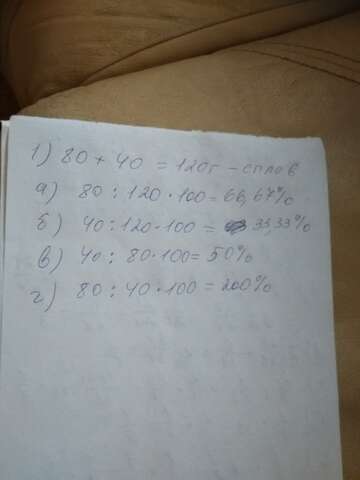 1) 80 + 40 = 120г - сплав
а) 80 : 120 · 100 = 66,67%
б) 40 : 120 · 100 = 33,33%
в) 40 : 80 · 100 = 50%
г) 80 : 40 · 100 = 200%